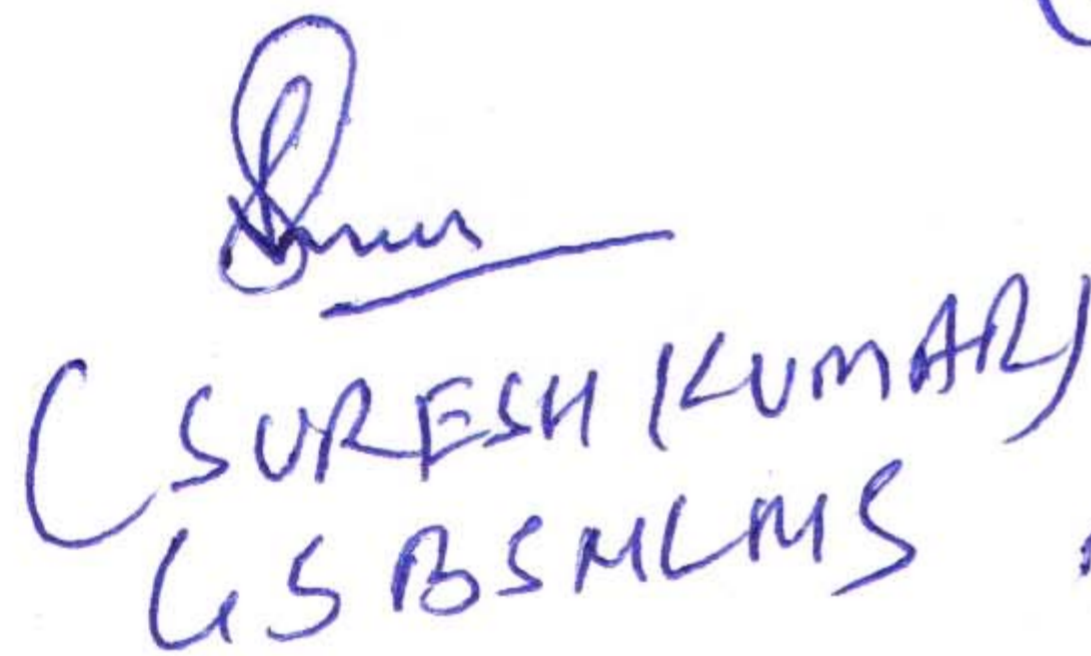 (SURESH KUMAR)
GS BSNLMS